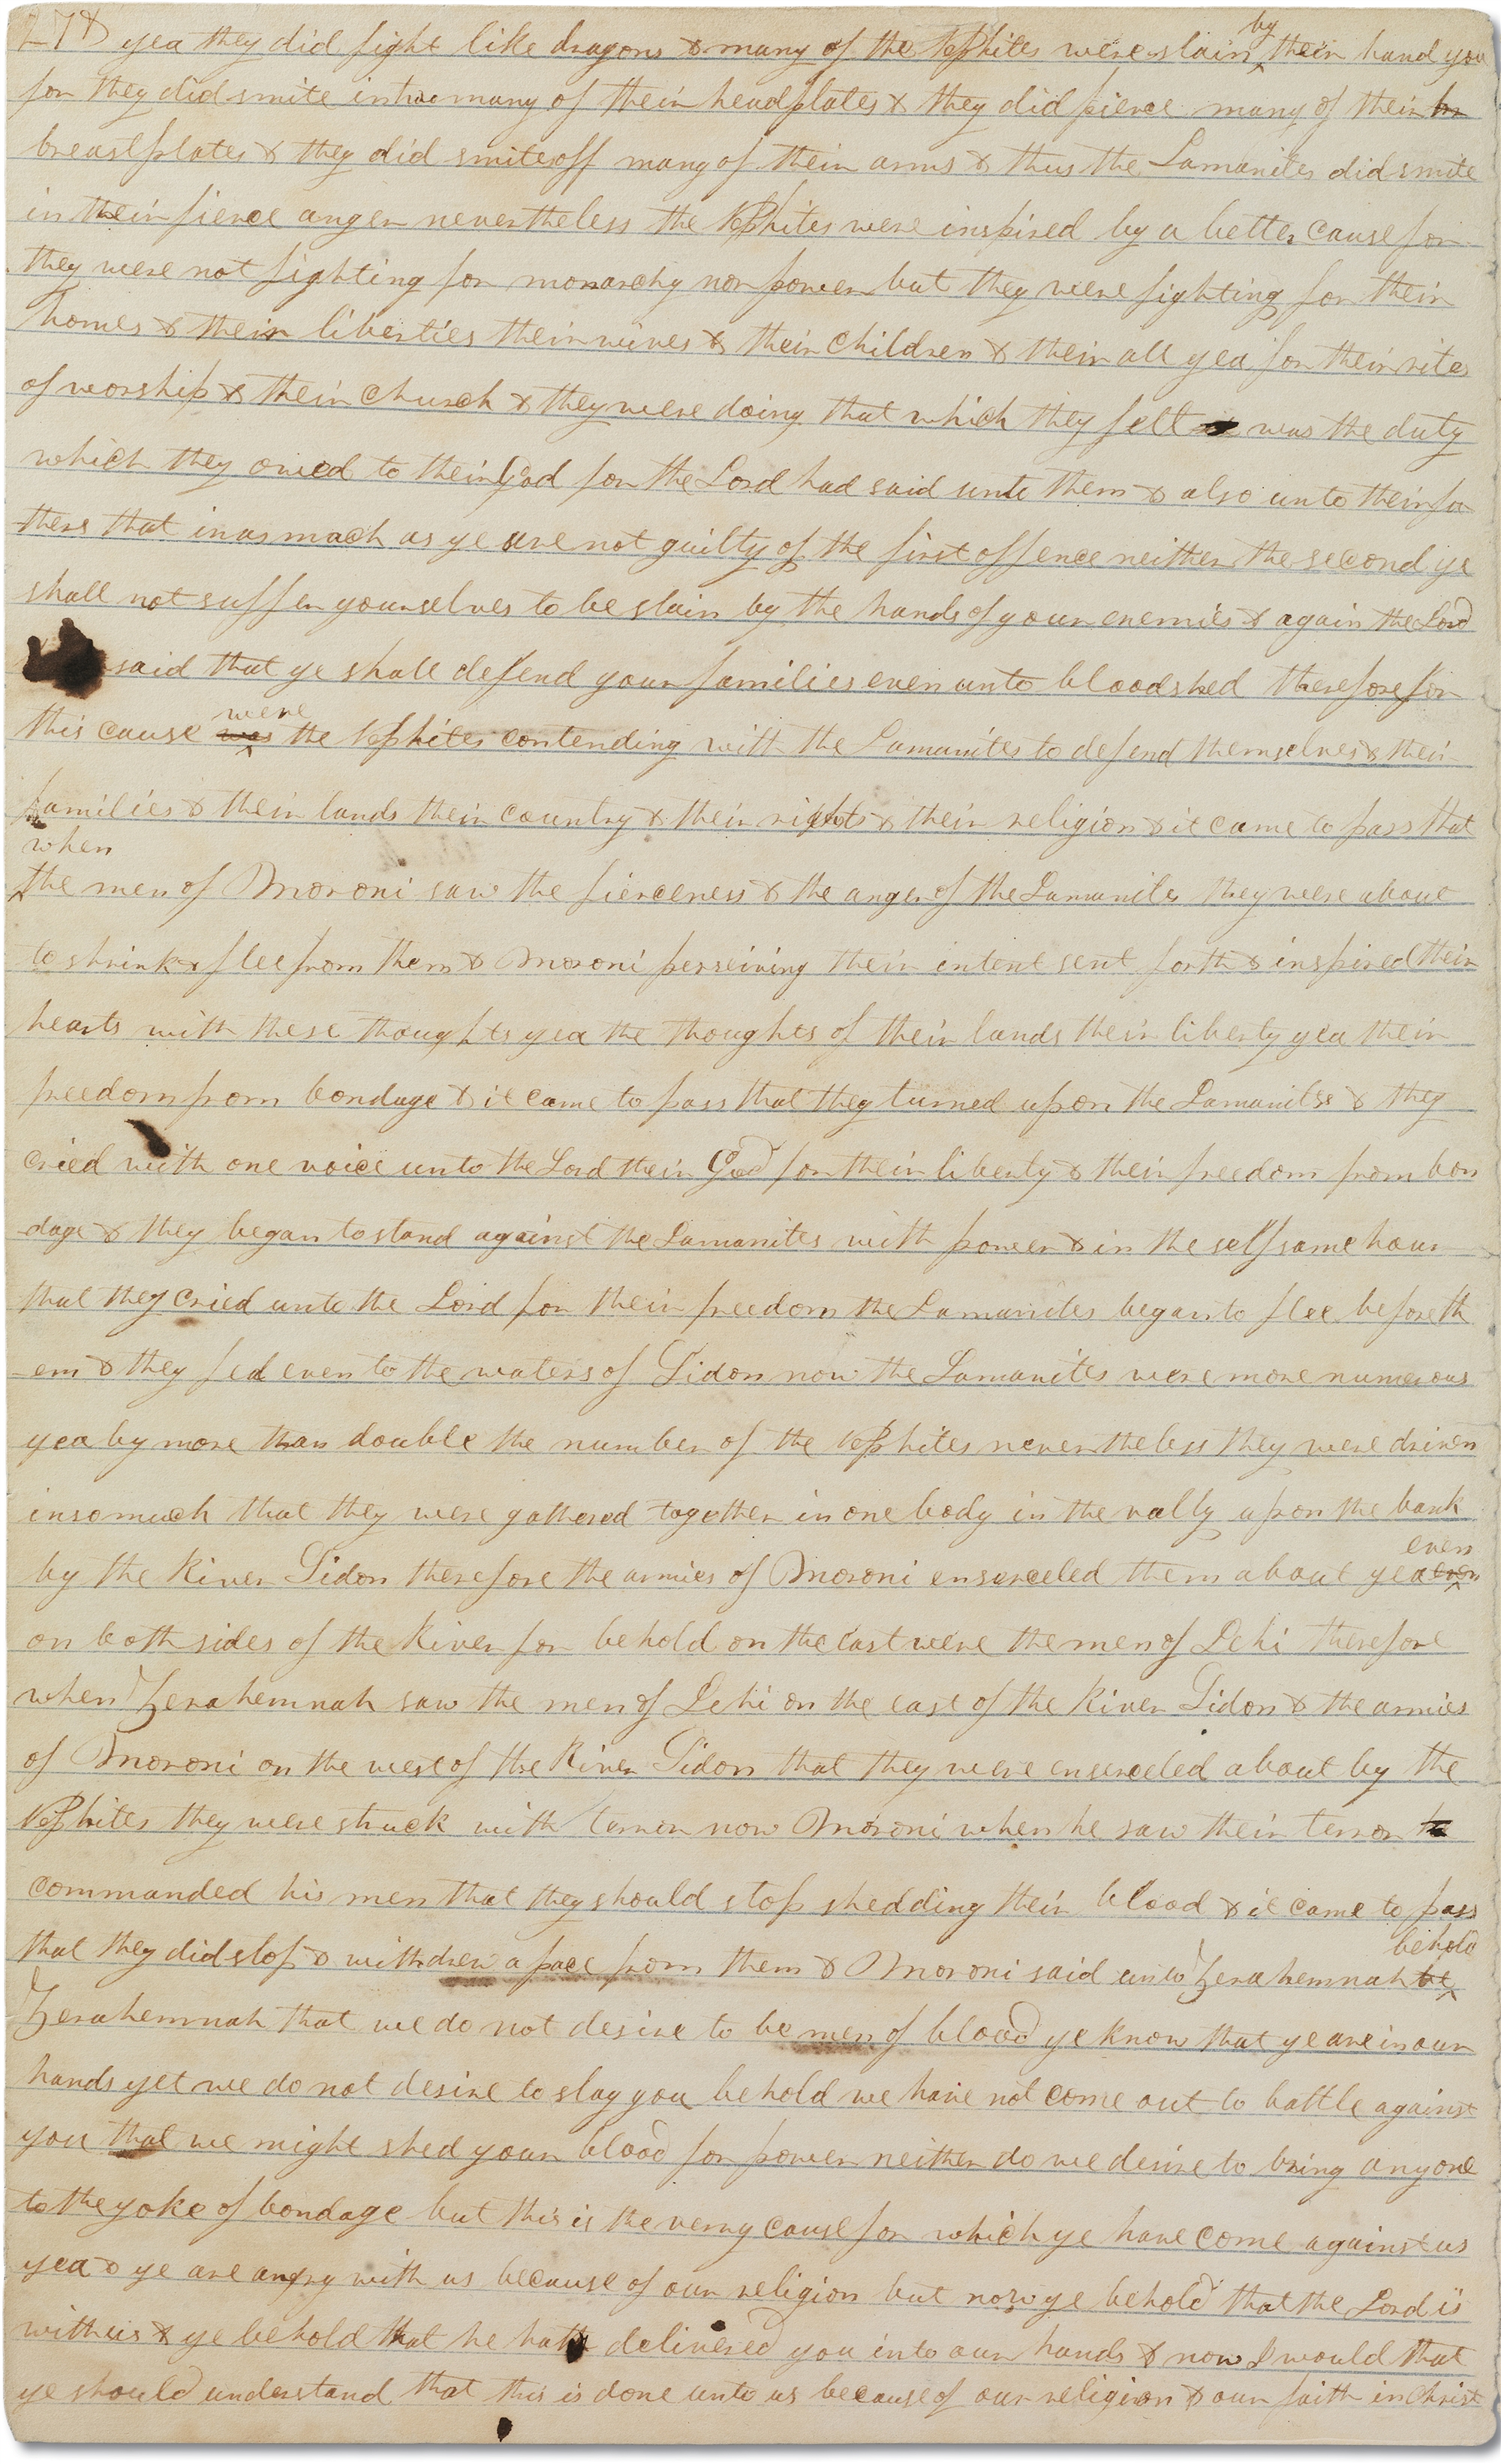 278 yea they did fight like dragons & many of the Nephites were slain by their hand yea
for they did smite in two many of their head plates & they did pierce many of their br
breastplates & they did smite off many of their arms & thus the Lamanites did smite
in their fierce anger nevertheless the Nephites were inspired by a better cause for
they were not fighting for monarchy nor power but they were fighting for their
homes & their liberties their wives & their children & their all yea for their rites
of worship & their church & they were doing that which they felt was the duty
which they owed to their God for the Lord had said unto them & also unto their fa
thers that inasmuch as ye are not guilty of the first offence neither the second ye
shall not suffer yourselves to be slain by the hands of your enemies & again the Lord
said that ye shall defend your families even unto bloodshed therefore for
this cause was were the Nephites contending with the Lamanites to defend themselves & their
families & their lands their country & their rights & their religion & it came to pass that
when
the men of Moroni saw the fierceness & the anger of the Lamanites they were about
to shrink & flee from them & Moroni perseiving their intent sent forth & inspired their
hearts with these thoughts yea the thoughts of their lands their liberty yea their
freedom from bondage & it came to pass that they turned upon the Lamanites & they
cried with one voice unto the Lord their God for their liberty & their freedom from bon
-dage & they began to stand against the Lamanites with power & in the selfsame hour
that they cried unto the Lord for their freedom the Lamanites began to flee before th
-em & they fled even to the waters of Sidon now the Lamanites were more numerous
yea by more than double the number of the Nephites nevertheless they were driven
insomuch that they were gathered together in one body in the vally upon the bank
by the River Sidon therefore the armies of Moroni enserceled them about yea even even
on both sides of the River for behold on the east were the men of Lehi therefore
when Zerahemnah saw the men of Lehi on the east of the River Sidon & the armies
of Moroni on the west of the River Sidon that they were enserceled about by the
Nephites they were struck with terror now Moroni when he saw their terror he
commanded his men that they should stop shedding their blood & it came to pass
that they did stop & withdrew a pace from them & Moroni said unto Zerahemnah be behold
Zerahemnah that we do not desire to be men of blood ye know that ye are in our
hands yet we do not desire to slay you behold we have not come out to battle against
you that we might shed your blood for power neither do we desire to bring any one
to the yoke of bondage but this is the very cause for which ye have come against us
yea & ye are angry with us because of our religion but now ye behold that the Lord is
with us & ye behold that he hath delivered you into our hands & now I would that
ye should understand that this is done unto us because of our religion & our faith in Christ